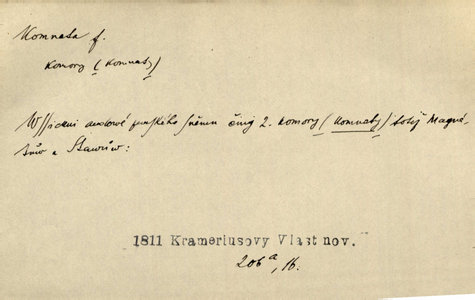 Komnata f.
Komory (Komnaty)
Wssickni audowé ho sněmu činj 2. komory (Komnaty) totiž Magná-
tůw a Stawůw:
1811 Krameriusovy Vlast nov.
206 a, 16.